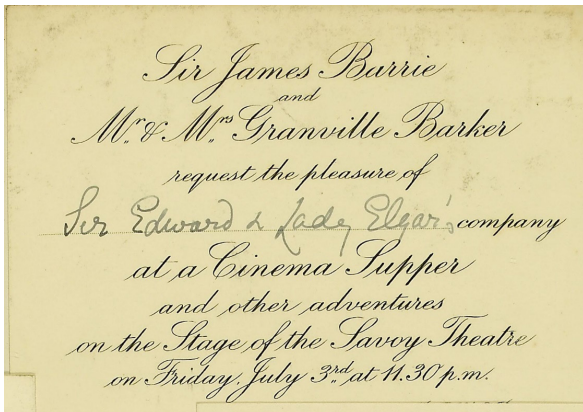 Sir James Barrie
and
Mr. & Mrs. Granville Barker
request the pleasure of
Sir Edward & Lady Elgar's company
at a Cinema Supper
and other adventures
on the Stage of the Savoy Theatre
on Friday, July 3rd at 11.30 p.m.